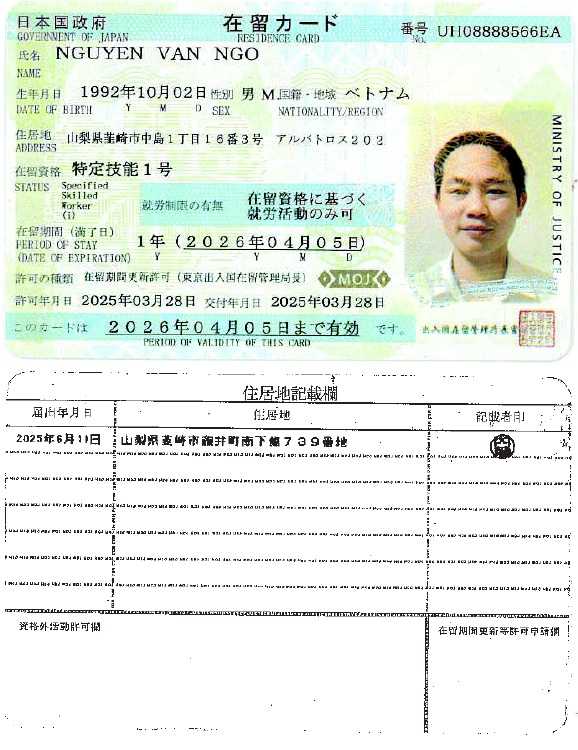 日本国政府 在留カード 番号 UH08888566EA
GOVERNMENT OF JAPAN RESIDENCE CARD No.
氏名 NGUYEN VAN NGO
NAME
生年月日 1992年10月02日 性別 男 M. 国籍・地域 ベトナム
DATE OF BIRTH Y M D SEX NATIONALITY/REGION
住居地 山梨県韮崎市中島1丁目16番3号 アルバトロス202
ADDRESS
在留資格 特定技能1号
STATUS Specified
Skilled
Worker
(i)
就労制限の有無 在留資格に基づく
就労活動のみ可
在留期間(満了日) 1年(2026年04月05日)
PERIOD OF STAY
(DATE OF EXPIRATION) Y M D
許可の種類 在留期間更新許可(東京出入国在留管理局長) MOJ
許可年月日 2025年03月28日 交付年月日 2025年03月28日
このカードは 2026年04月05日まで有効 です。
PERIOD OF VALIDITY OF THIS CARD
MINISTRY OF JUSTICE
出入国在留管理庁長官
住居地記載欄
届出年月日 住居地 記載者印
2025年6月 日 山梨県韮崎市 井町南下條739番地
資格外活動許可欄 在留期間更新等許可申請欄